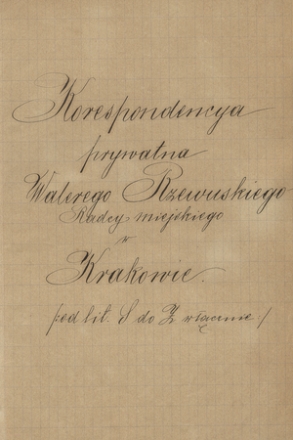 Korespondencya
prywatna
Walerego Rzewuskiego
Radcy miejskiego
w
Krakowie.
/od lit. S do Z włącznie./